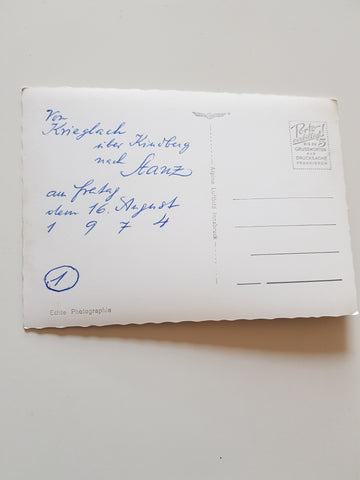 Von
Krieglach
über Kindberg
nach Stanz
am Freitag
dem 16. August
1 9 7 4
1
Echte Photographie
Alpine Luftbild Innsbruck
Porto
5
GRUSSWORTEN
ALS
DRUCKSACHE
FRANKIEREN